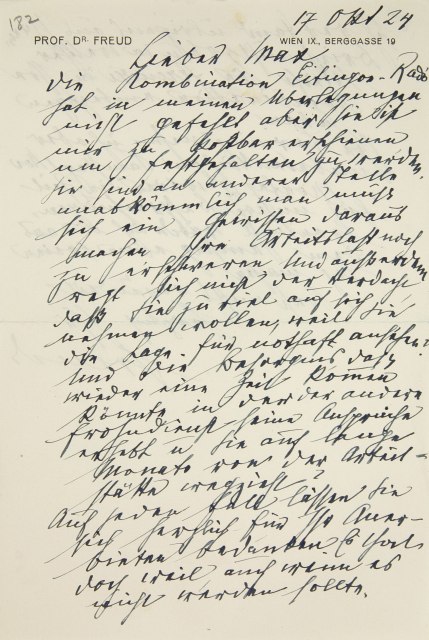 182
17 Okt 24
PROF. DR. FREUD
WIEN IX., BERGGASSE 19
Lieber Max
Die Kombination Eitingon-Radó
hat in meinen Überlegungen
nicht gefehlt aber sie ist
mir zu kostbar erschienen
um festgehalten zu werden.
Sie sind an anderer Stelle
unabkömmlich man muß
sich ein Gewissen daraus
machen Ihre Arbeitslast noch
zu erschweren und außerdem
regt sich nicht der Verdacht
daß Sie zu viel auf sich
nehmen wollen, weil Sie
die Lage für nothaft ansehen?
Und die Besorgnis daß
wieder eine Zeit kommen
könnte in der der andere
Frohndienst seine Ansprüche
erhebt u Sie auf lange
Monate von der Arbeit-
stätte wegzieht?
Auf jeden Fall lassen Sie
sich herzlich für Ihr Aner-
bieten bedanken Es thut
doch weil auch wenn es
nicht werden sollte.